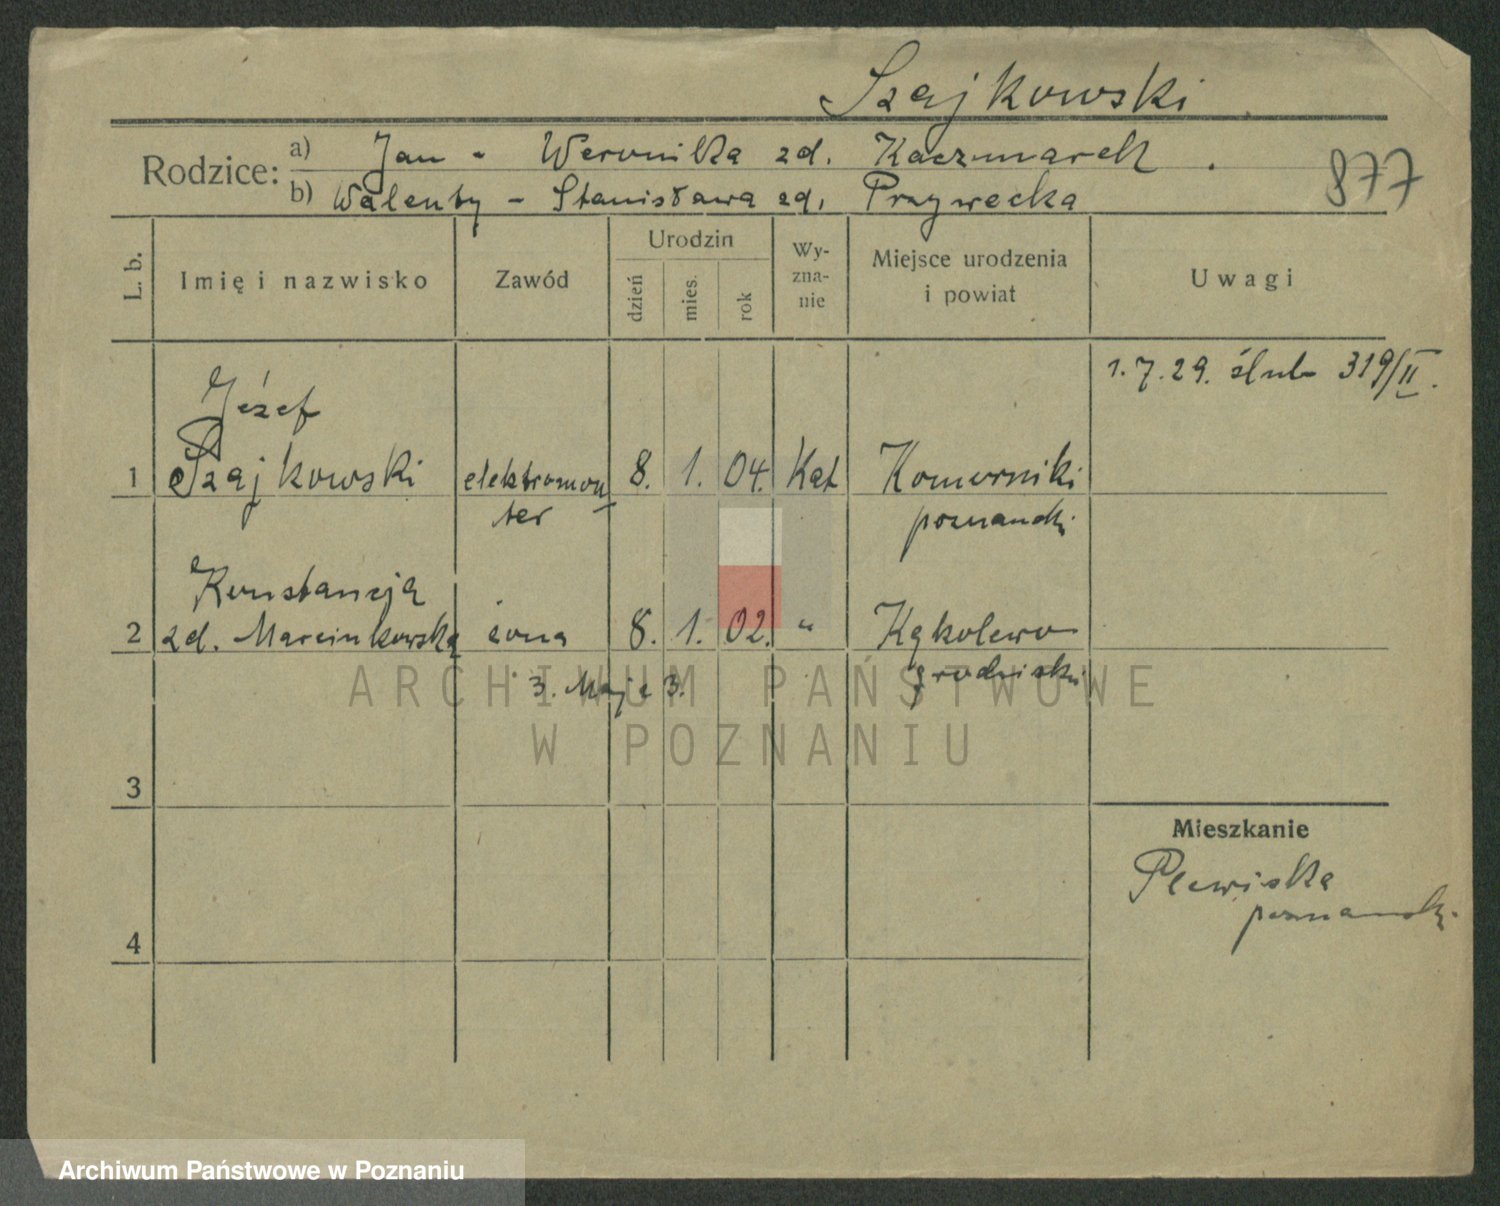 Szajkowski
Rodzice: a) Jan - Weronika zd. Kaczmarek.
b) Walenty - Stanisława zd. Przywecka
877
L. b.
Imię i nazwisko
Zawód
Urodzin
dzień
mies.
rok
Wy-
zna-
nie
Miejsce urodzenia
i powiat
Uwagi
1.7.29. ślub 319/II.
Józef
1 Szajkowski elektromon- 8. 1. 04. Kat Komorniki
ter poznański
Konstancja
2 zd. Marcinkowska żona 8. 1. 02. " Kąkolewo
grodziski
3. Maja 3.
ARCHIWUM PAŃSTWOWE
W POZNANIU
3
Mieszkanie
Plewiska
poznański.
4
Archiwum Państwowe w Poznaniu